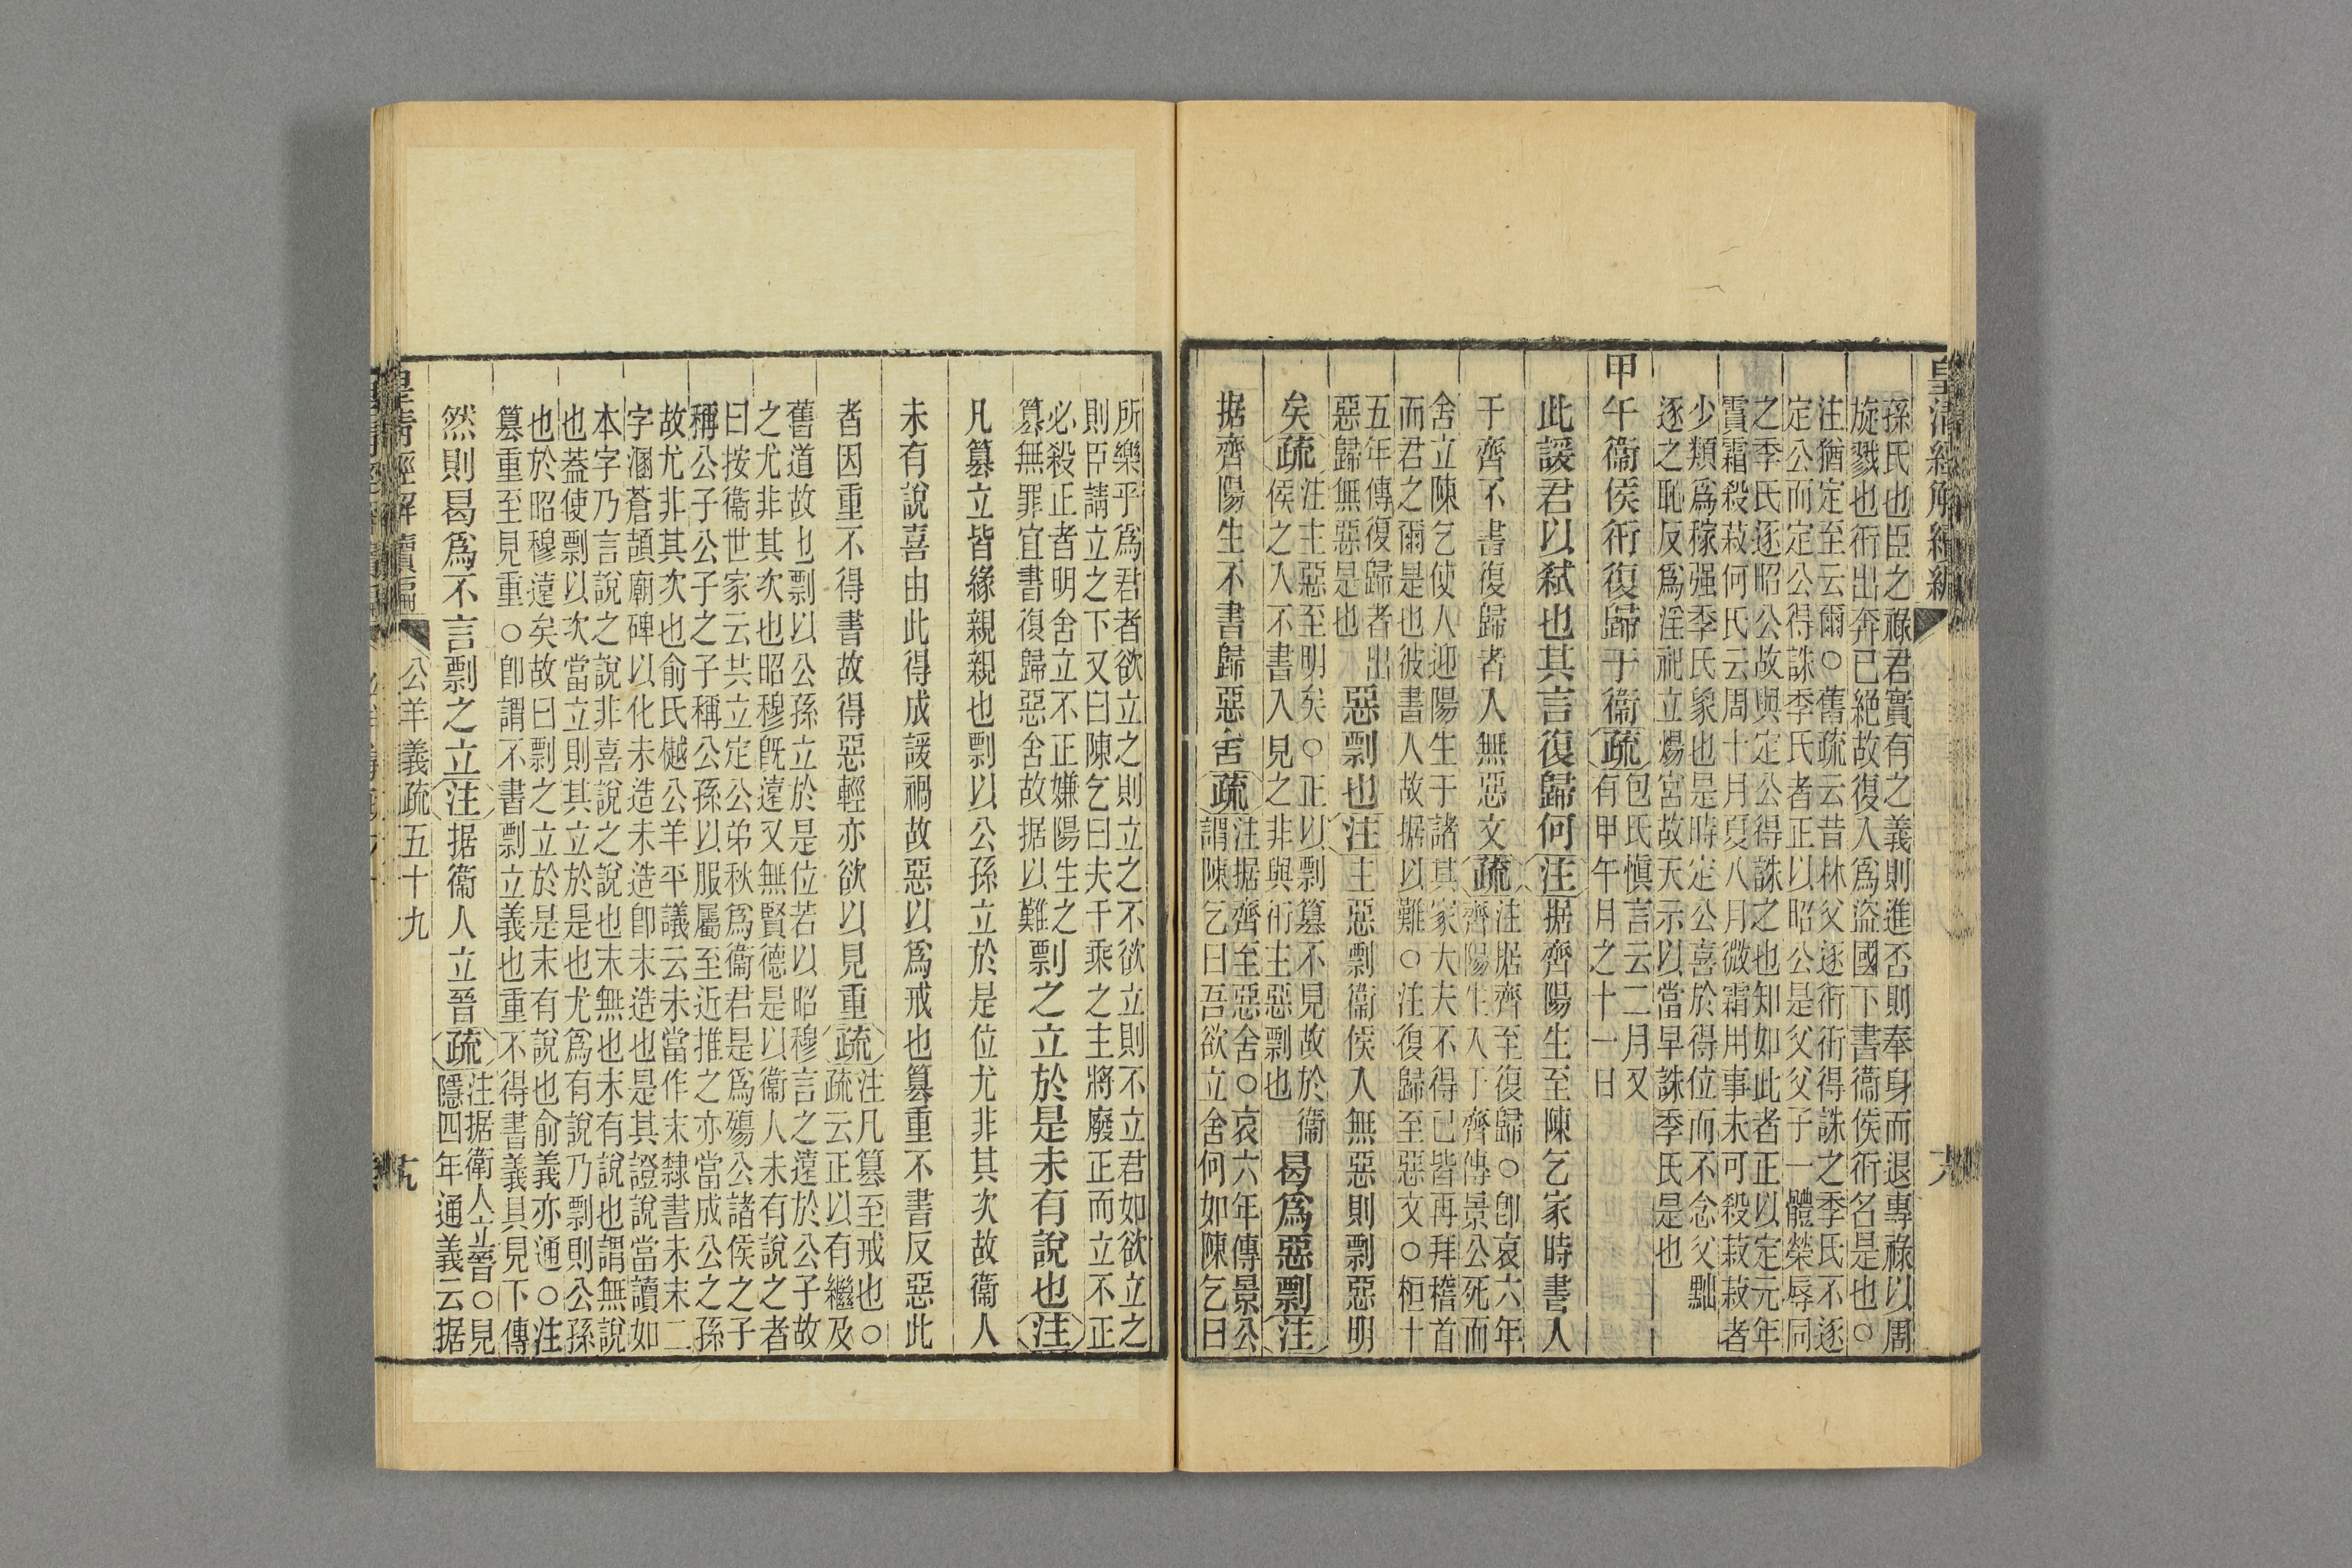 皇清經解續編
孫氏也臣之祿君實有之義則進否則奉身而退專祿以周
旋戮也衎出奔已絕故復入爲盜國下書衞侯衎名是也○
注猶定至云爾○舊疏云昔林父逐衎衎得誅之季氏不逐
定公而定公得誅季氏者正以昭公是父父子一體榮辱同
之季氏逐昭公故與定公得誅之也知如此者正以定元年
霣霜殺菽何氏云周十月夏八月微霜用事未可殺菽菽者
少類爲稼强季氏象也是時定公喜於得位而不念父黜
逐之恥反爲淫祀立煬宮故天示以當早誅季氏是也
甲午衞侯衎復歸于衞疏
包氏愼言云二月又
有甲午月之十一日
此諼君以弒也其言復歸何注据齊陽生至陳乞家時書入
于齊不書復歸者入無惡文疏
注据齊至復歸○卽哀六年
齊陽生入于齊傳景公死而
舍立陳乞使人迎陽生于諸其家大夫不得已皆再拜稽首
而君之爾是也彼書入故据以難○注復歸至惡文○桓十
五年傳復歸者出
惡歸無惡是也
惡剽也注主惡剽衞侯入無惡則剽惡明
矣疏
注主惡至明矣○正以剽篡不見故於衞
侯之入不書入見之非與衎主惡剽也
曷爲惡剽注
据齊陽生不書歸惡舍疏
注据齊至惡舍○哀六年傳景公
謂陳乞曰吾欲立舍何如陳乞曰
所樂乎爲君者欲立之則立之不欲立則不立君如欲立之
則臣請立之下又曰陳乞曰夫千乘之主將廢正而立不正
必殺正者明舍立不正嫌陽生之
篡無罪宜書復歸惡舍故据以難
剽之立於是未有說也注
凡篡立皆緣親親也剽以公孫立於是位尤非其次故衞人
未有說喜由此得成諼禍故惡以爲戒也篡重不書反惡此
者因重不得書故得惡輕亦欲以見重疏
注凡篡至戒也○
疏云正以有繼及
舊道故也剽以公孫立於是位若以昭穆言之遠於公子故
之尤非其次也昭穆旣遠又無賢德是以衞人未有說之者
曰按衞世家云共立定公弟秋爲衞君是爲殤公諸侯之子
稱公子公子之子稱公孫以服屬至近推之亦當成公之孫
故尤非其次也俞氏樾公羊平議云未當作末隸書未末二
字溷蒼頡廟碑以化未造未造卽末造也是其證說當讀如
本字乃言說之說非喜說之說也末無也末有說也謂無說
也蓋使剽以次當立則其立於是也尤爲有說乃剽則公孫
也於昭穆遠矣故曰剽之立於是末有說也俞義亦通○注
篡重至見重○卽謂不書剽立義也重不得書義具見下傳
然則曷爲不言剽之立注据衞人立晉疏
注据衞人立晉○見
隱四年通義云据
皇清經解續編
公羊義疏五十九